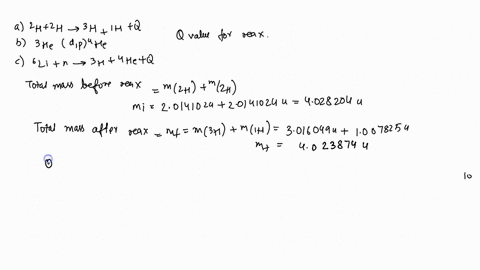 a) 2H+2H → 3H + 1H +Q
b) 3He (d,p) 4He
c) 6Li + n → 3H + 4He + Q
Q value for reax.
Total mass before reax = m(2H) + m(2H)
mi = 2.014102u + 2.014102u = 4.028204u
Total mass after reax = mf = m(3H) + m(1H) = 3.016049u + 1.007825u
mf = 4.023874u
10